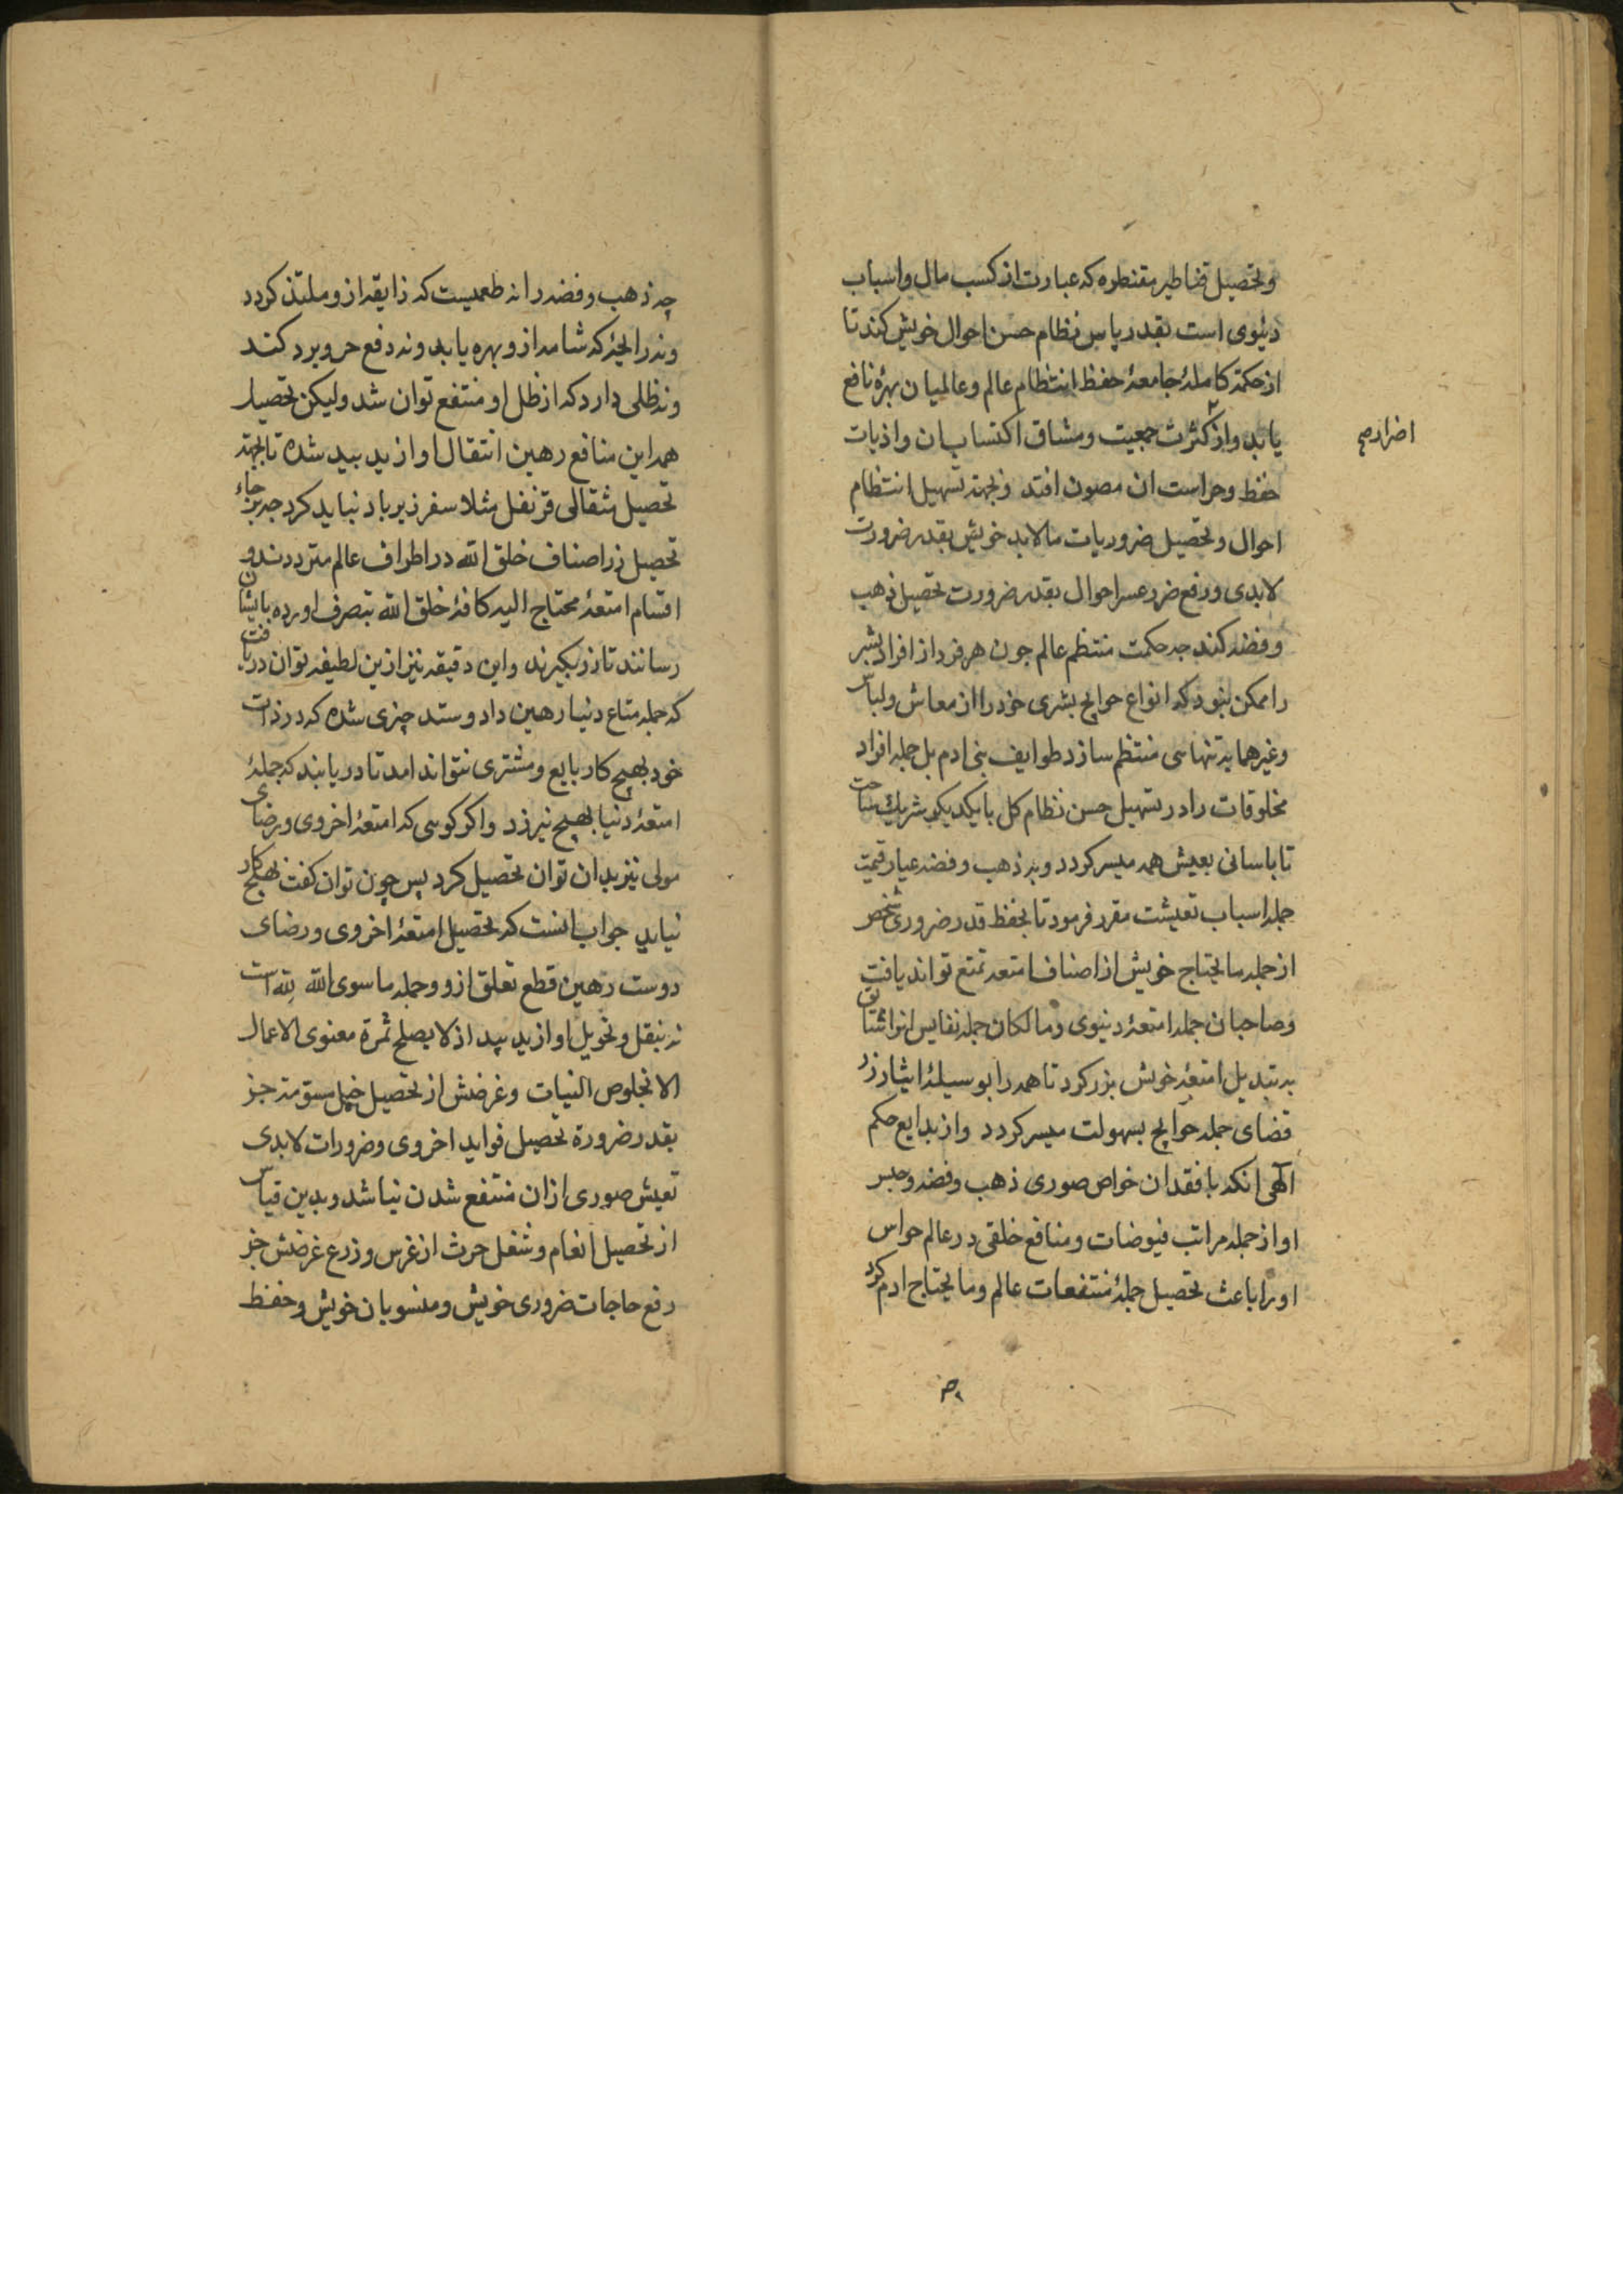 وتحصیل قناطیر مقنطره که عبارت از کسب مال واسباب
دنیوی است بقدر پاس نظام حسن احوال خویش کند تا
از حکمة کاملهٔ جامعهٔ حفظ انتظام عالم وعالمیان بهرهٔ نافع
یابد واز کثرت جمعیت ومشاق اکتساب ان واذیات
اضرار صح
حفظ وحراست ان مصون افتد وبجهة تسهیل انتظام
احوال وتحصیل ضروریات مالابد خویش بقدر ضرورت
لابدی ورفع ضرر عسر احوال بقدر ضرورت تحصیل ذهب
وفضه کند جه حکمت منتظم عالم جون هر فرد از افراد بشر
را ممکن نبود که انواع حوایج بشری خود را از معاش ولباس
وغیرهما به تنهاسی منتظم سازد طوایف بنی ادم بل جمله افراد
مخلوقات را در تسهیل حسن نظام کل با یکدیکر شریک ساخت
تا باسانی بعیش همه میسر کردد وبه ذهب وفضه عیار قیمت
جمله اسباب تعیشت مقرر فرمود تا بحفظ قدر ضروری شخص
از جمله مایحتاج خویش از اصناف امتعه تمتع تواند یافت
وصاحبان جمله امتعهٔ دنیوی ومالکان جمله نفایس انرا شتاق
به تبدیل امتعهٔ خویش بزر کرد تا همه را بوسیلهٔ ایثار زر
قضای جمله حوایج بسهولت میسر کردد واز بدایع حکم
الهی انکه با فقدان خواص صوری ذهب وفضه وحبس
او از جمله مراتب فیوضات ومنافع خلقی در عالم حواس
او را باعث تحصیل جملهٔ منتفعات عالم ومایحتاج ادم کرد
چه ذهب وفضه را نه طعمیست که ذایقه از و ملتذ کردد
ونه رایحهٔ که شامه از و بهره یابد ونه دفع حر وبرد کند
ونه ظلی دارد که از ظل او منتفع توان شد ولیکن تحصیل
همه این منافع رهین انتقال او از ید بید شده تا بجهة
تحصیل مثقالی قرنفل مثلا سفر زیر باد نباید کرد جه برجاء
تحصیل زر اصناف خلق الله در اطراف عالم مترددند و
اقسام امتعهٔ محتاج الیه کافهٔ خلق الله بتصرف اورده بایشان
رسانند تا زر بکیرند واین دقیقه نیز ازین لطیفه توان دریافت
که جمله متاع دنیا رهین داد وستد چیزی شده که در ذات
خود بهیچ کار بایع ومشتری نتواند امد تا دریابند که جملهٔ
امتعهٔ دنیا بهیچ نیرزد واکر کوسی که امتعهٔ اخروی ورضای
مولی نیز بدان توان تحصیل کرد پس چون توان کفت بهیچ کار
نیاید جواب انست که تحصیل امتعهٔ اخروی ورضای
دوست رهین قطع تعلق از و وجمله ماسوی الله لله است
نه بنقل وتحویل او از ید بید اذ لایصلح ثمرة معنوی الاعمال
الا بخلوص النیات وغرضش از تحصیل خیل مسومه جز
بقدر ضرورة تحصیل فواید اخروی وضرورات لابدی
تعیش صوری ازان منتفع شدن نباشد وبدین قیاس
از تحصیل انعام وشغل حرث از غرس وزرع غرضش جز
رفع حاجات ضروری خویش ومنسوبان خویش وحفظ